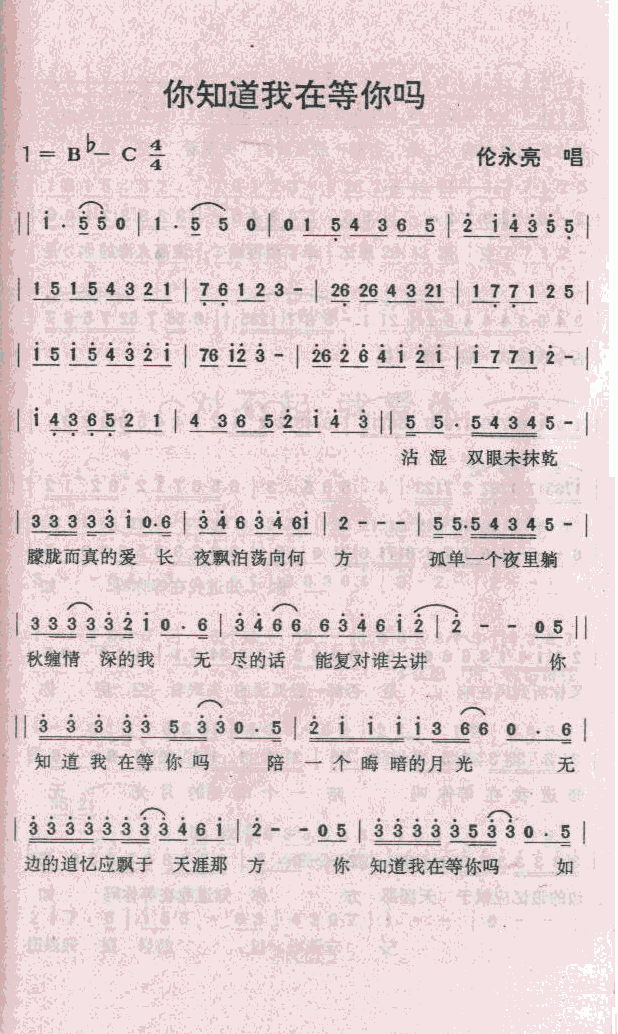 你知道我在等你吗
1 = B♭ — C 4/4 伦永亮 唱
‖ i · 5 5 0 | 1 · 5 5 0 | 0 1 5 4 3 6 5 | 2 i 4 3 5 5 |
| 1 5 1 5 4 3 2 1 | 7 6 1 2 3 – | 26 26 4 3 21 | 1 7 7 1 2 5 |
| i 5 i 5 4 3 2 1 | 76 i2 3 – | 26 2 6 4 1 2 1 | i 7 7 1 2 – |
| i 4 3 6 5 2 1 | 4 3 6 5 2 i 4 3 ‖ 5 5 · 5 4 3 4 5 – |
沾 湿 双眼未抹乾
| 3 3 3 3 3 i 0 · 6 | 3 4 6 3 4 6i | 2 – – – | 5 5 · 5 4 3 4 5 – |
朦胧而真的爱 长 夜飘泊荡向何 方 孤单一个夜里躺
| 3 3 3 3 3 2 i 0 · 6 | 3 4 6 6 6 3 4 6 i 2 | 2 – – 0 5 ‖
秋缠情 深的我 无 尽的话 能复对谁去讲 你
‖ 3 3 3 3 3 5 3 3 0 · 5 | 2 i i i i 3 6 6 0 · 6 |
知 道 我 在等你吗 陪 一个晦暗的月光 无
| 3 3 3 3 3 3 3 3 4 6 i | 2 – – 0 5 | 3 3 3 3 3 5 3 3 0 · 5 |
边的道忆应飘于 天涯那 方 你 知道我在等你吗 如